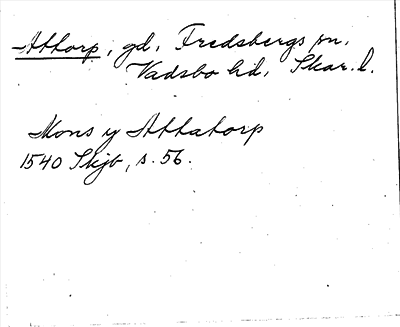 Attorp, gd, Fredsbergs sn.
Vadsbo hd, Skar. l.
Mons y Attatorp
1540 Skjb, s. 56.